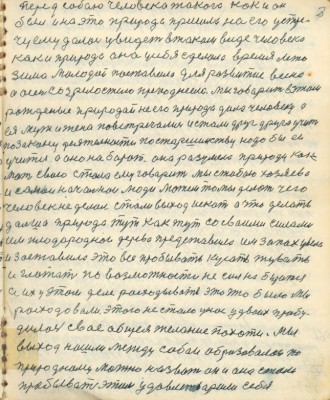 перед собою человека такого как и он
был и на это природа пришла на его устре
чу ему далось увидеть в таком виде человека
как и природа она у себя сделала время лето
Зима молодой поставила для развитие весна
а осень созрелостию преподнесла. Мы говорим в этом
рожденье природой на его природа дала человеку
муж и жена повстречались и стали друг друга учит
по закону деятельности по старшинству надо бы
учить а оно на барот. она разумела природу как
мать своего стала ему говорить мы с тобою хозяева
и самой начальной люди может то мы делат чего
человек не делал стали выход искат а что делать
дальше природа тут как тут со своими силами
им плодородное дерево представила им запах дала
и заставила это все пробывать кусать жувать
и глотат по возможности не
этом деле расходывать это то было мы
расходовали этого не стало у нас у двоих пробу
дилась свое общее желание похоти. Мы
выход нашли между собою образовалось по
природному можно назвать он и она стали
пробывать этим удовлетворили себя